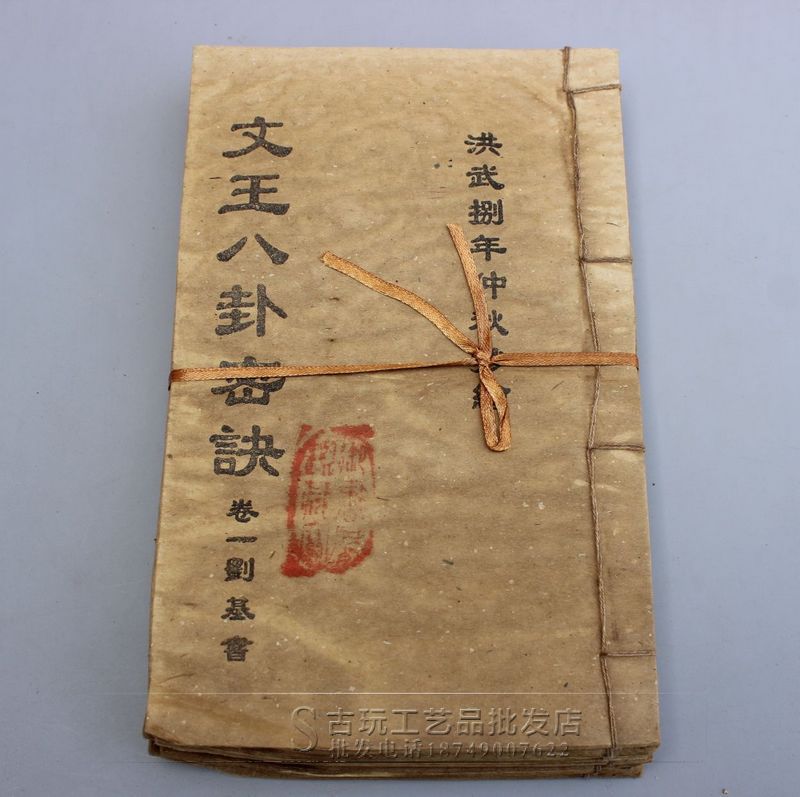 洪武捌年仲秋
文王八卦密訣
卷一劉基書
S古玩工艺品批发店
批发电话18749007622